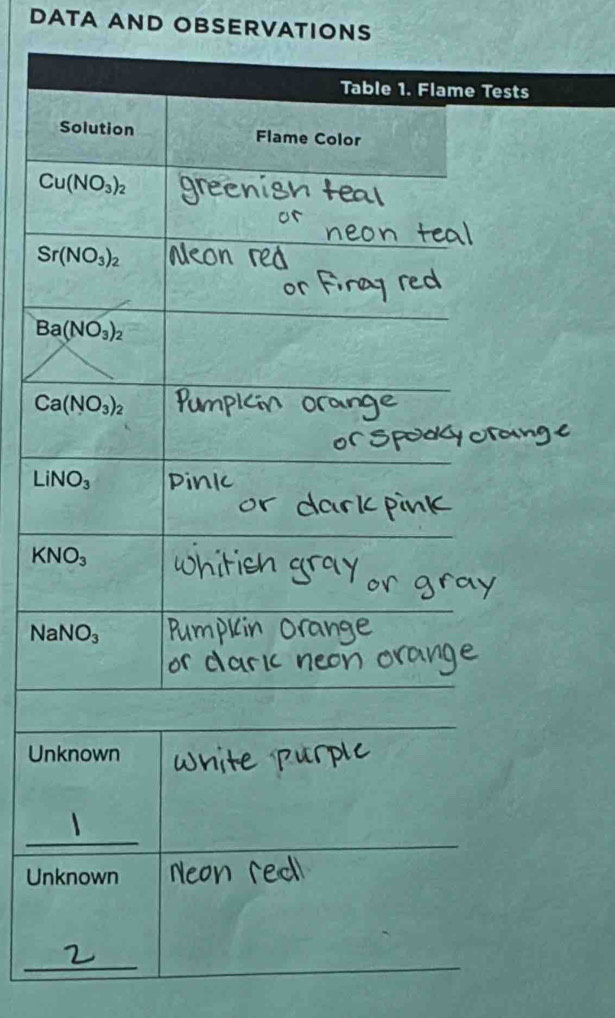 DATA AND OBSERVATIONS
Table 1. Flame Tests
Solution Flame Color
Cu(NO₃)₂ greenish teal
or
neon teal
Sr(NO₃)₂ Neon red
or Firey red
Ba(NO₃)₂
Ca(NO₃)₂ Pumpkin orange
or spooky orange
LiNO₃ pink
or dark pink
KNO₃ whitish gray
or gray
NaNO₃ Pumpkin orange
or dark neon orange
Unknown white purple
1
Unknown Neon red
2